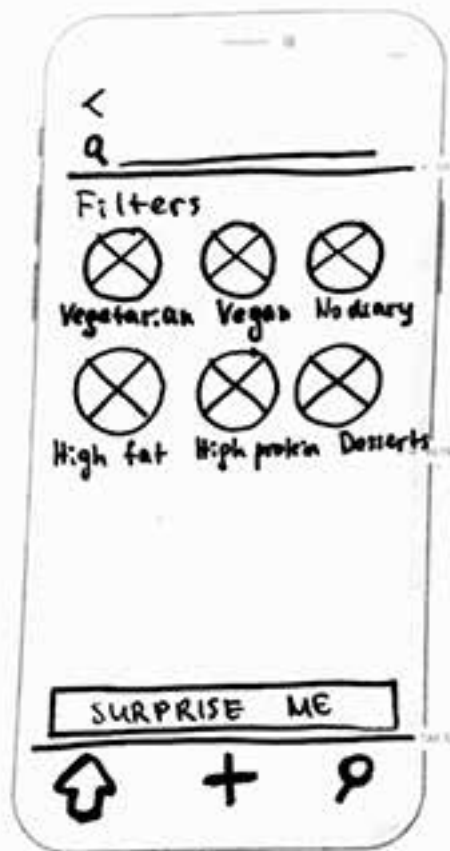 Filters
Vegetarian Vegan No diary
High fat High protein Desserts
SURPRISE ME